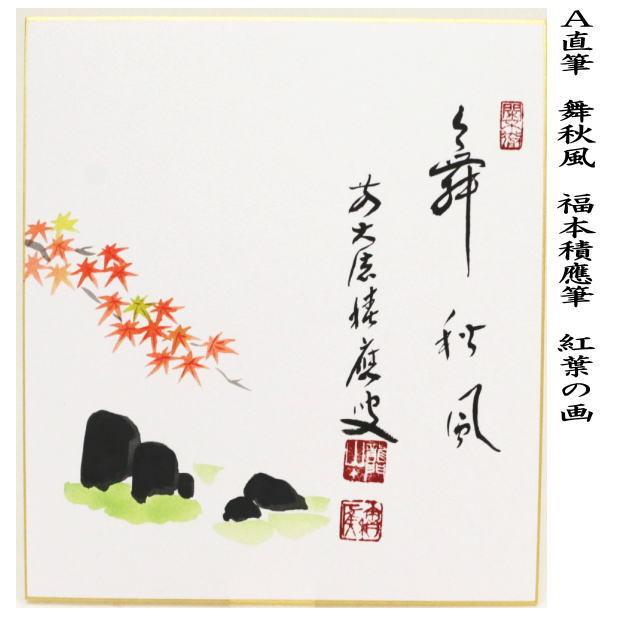 A直筆　舞秋風　福本積應筆　紅葉の画
舞 秋 風
前大徳積應叟